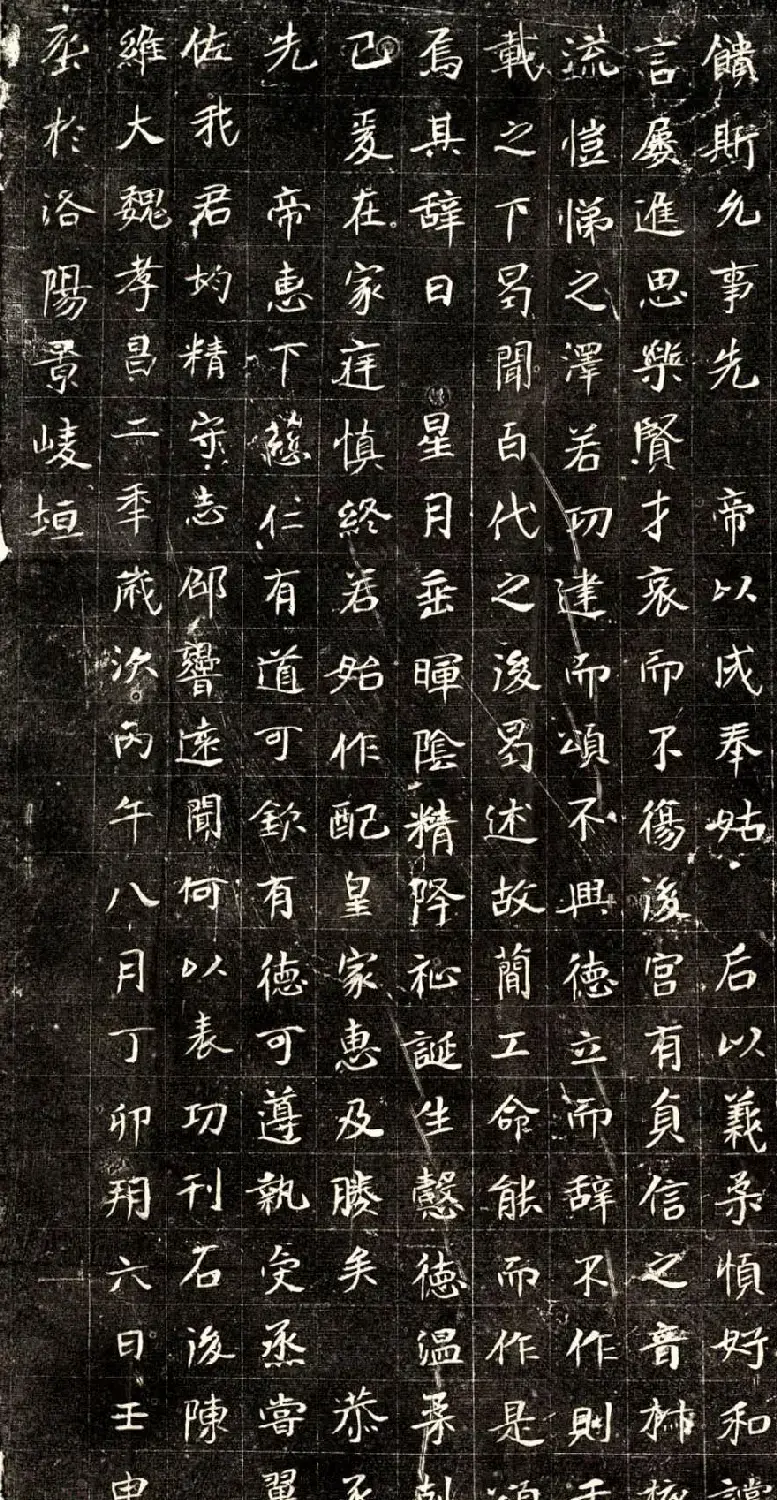 饋斯允事先帝以成奉姑后以義柔順好和
言屢進思樂賢才哀而不傷後宮有貞信之音
流愷悌之澤若功建而頌不興德立而辞不作則
載之下曷聞百代之後曷述故蕳工命能而作是頌
焉其辞曰星月垂暉陰精降祉誕生懿德温柔
已爰在家庭慎終若始作配皇家惠及媵矣恭承
先帝惠下慈仁有道可欽有德可遵執爨烝嘗翼
佐我君均精守志邵響遠聞何以表功刊石後陳
維大魏孝昌二年歲次丙午八月丁卯朔六日壬申
於洛陽景崚垣